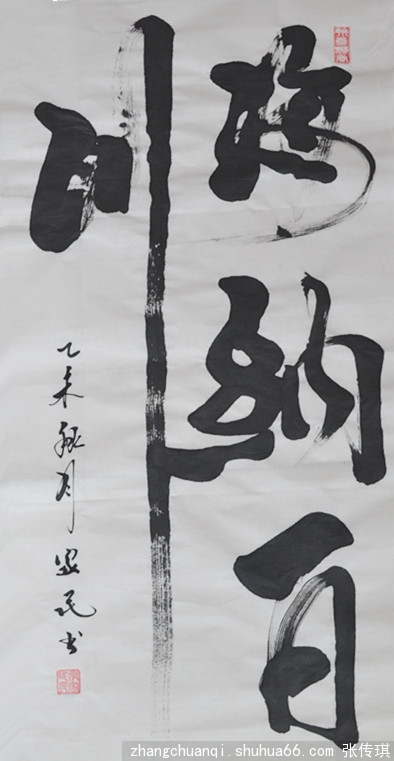 海納百
川
乙未秋月 民书
zhangchuanqi.shuhua66.com 张传琪